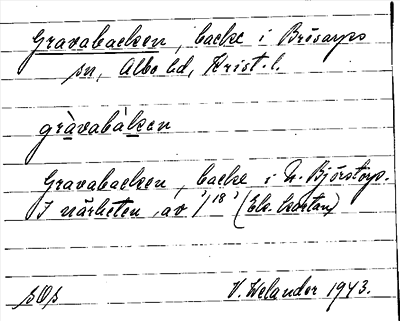 Gravabacken, backe i Brösarps
sn, Albo hd, Krist. l.
gràvabàken
Gravabacken, backe i N. Björstorp.
I närheten av "18" (Ek. kartan)
V. Welander 1943.